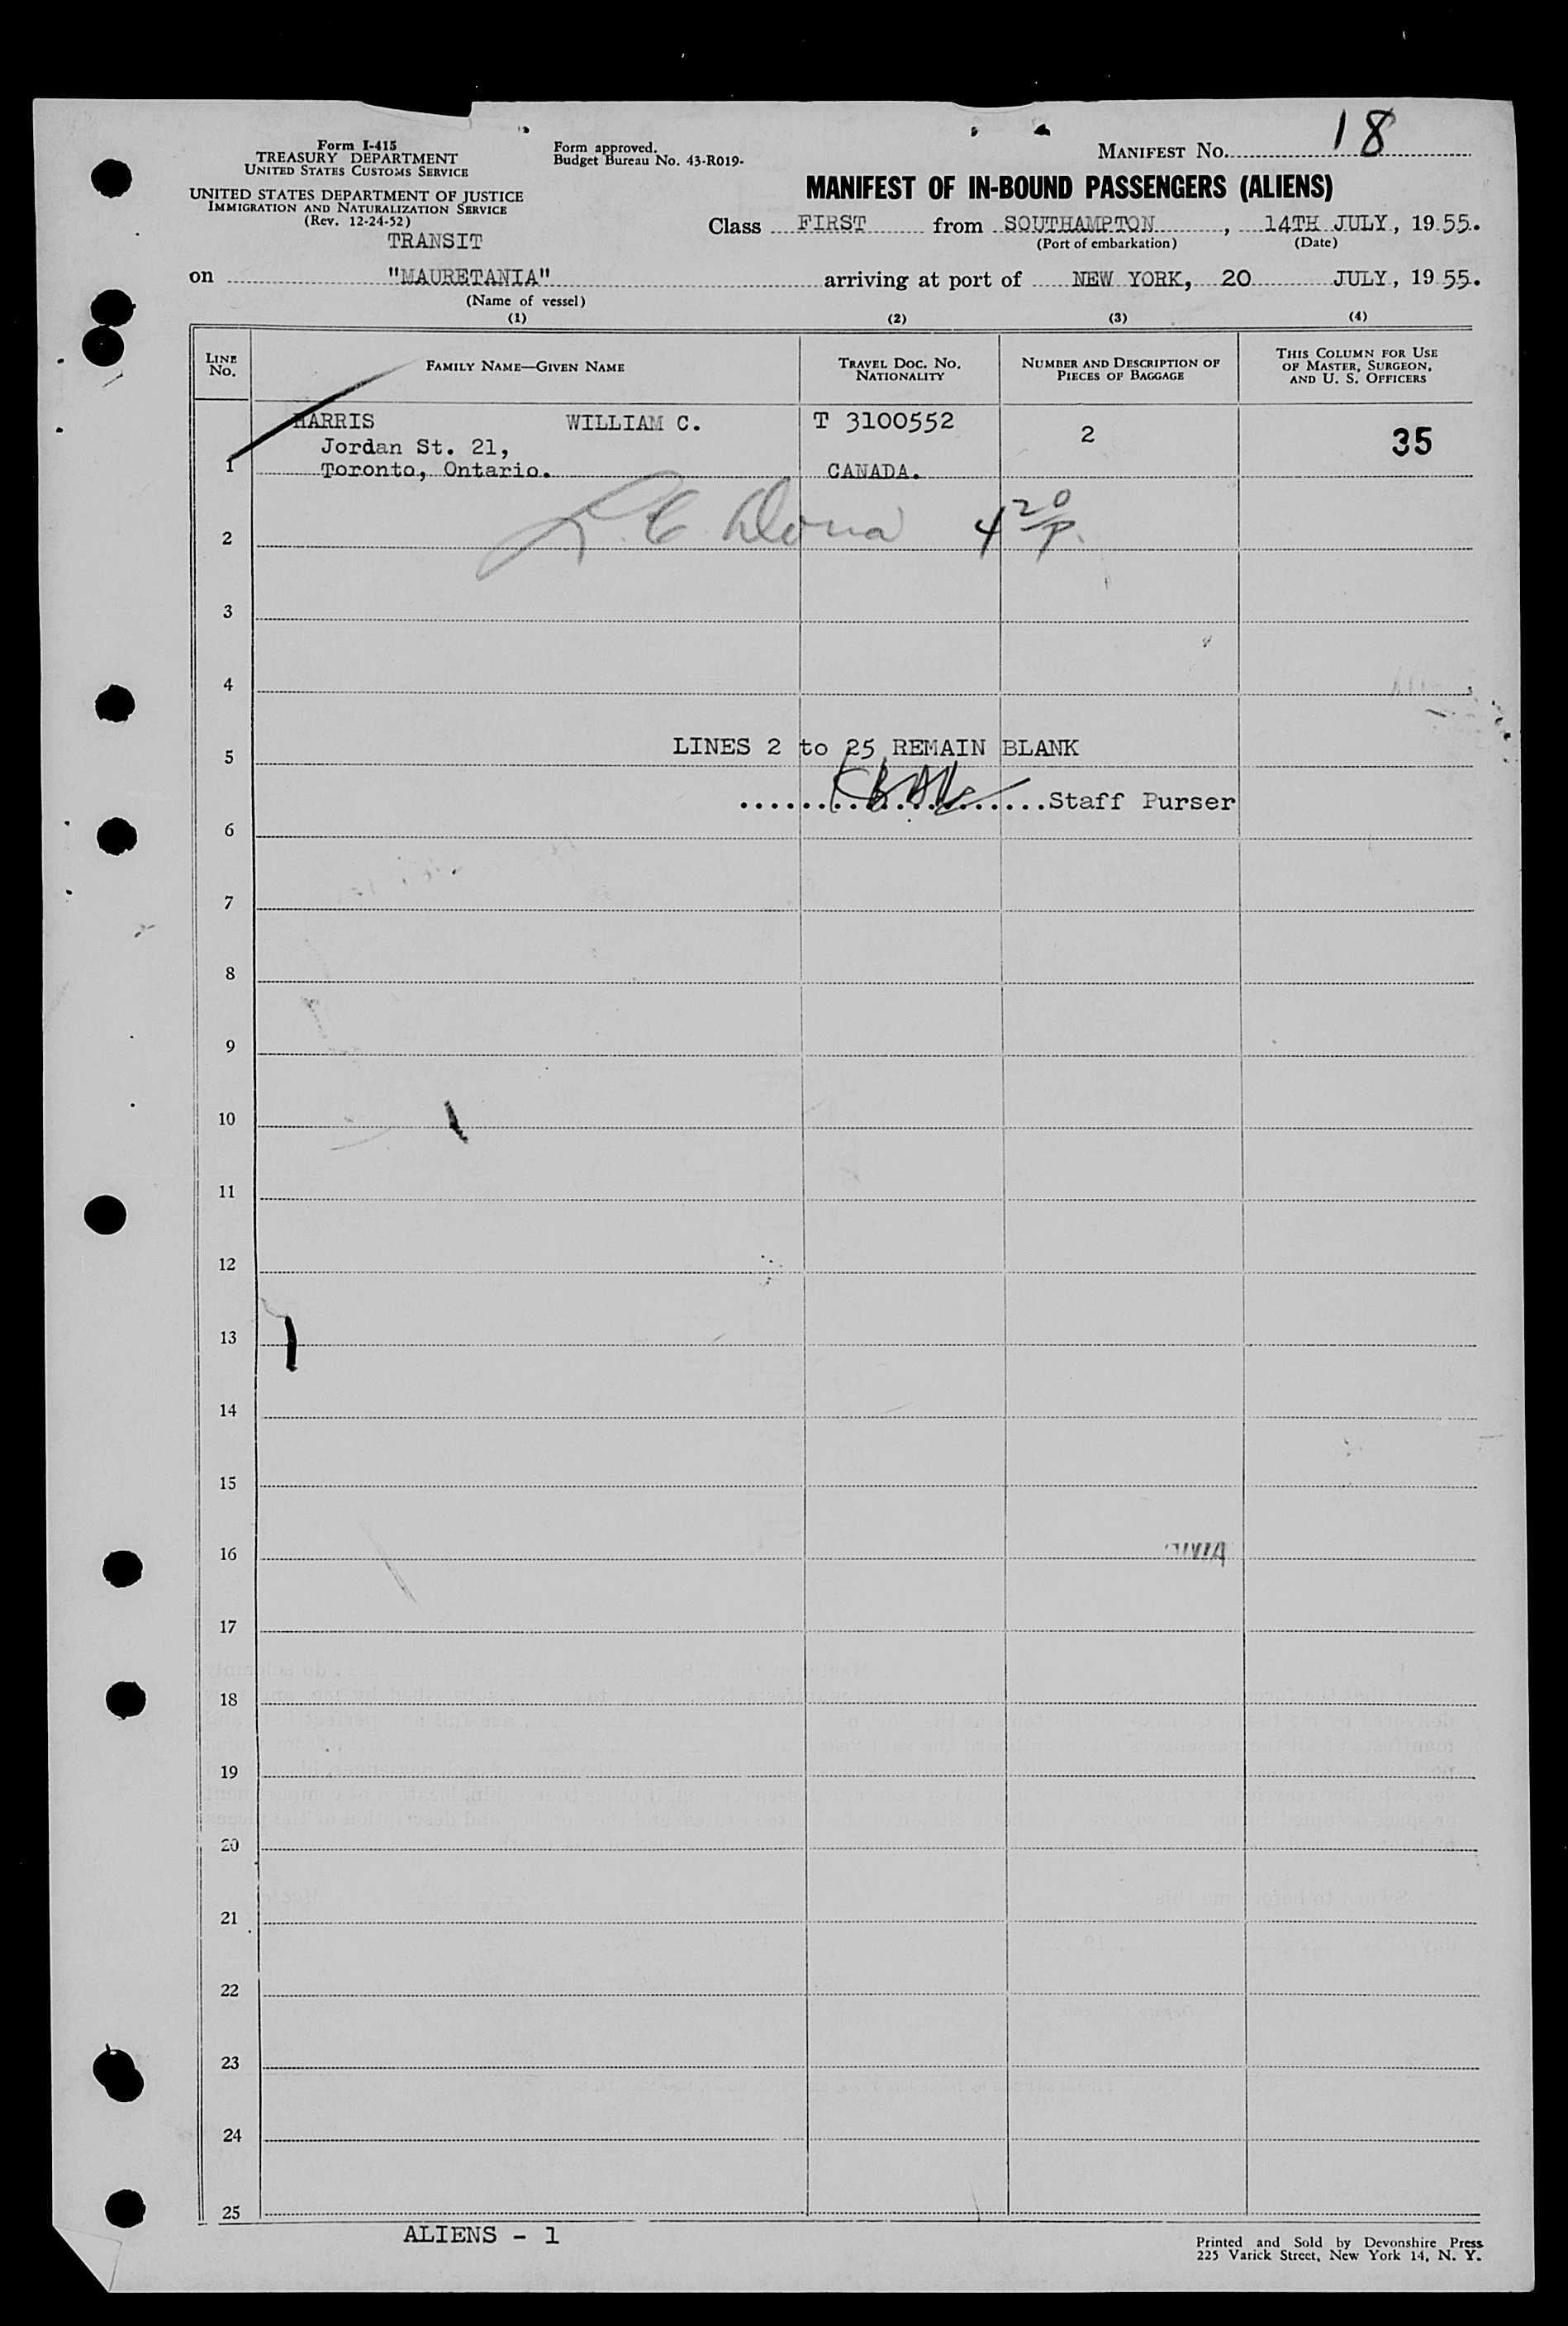 Form I-415
TREASURY DEPARTMENT
UNITED STATES CUSTOMS SERVICE
UNITED STATES DEPARTMENT OF JUSTICE
IMMIGRATION AND NATURALIZATION SERVICE
(Rev. 12-24-52)
TRANSIT
Form approved.
Budget Bureau No. 43-R019-
MANIFEST NO. 18
MANIFEST OF IN-BOUND PASSENGERS (ALIENS)
Class FIRST from SOUTHAMPTON, 14TH JULY, 19 55.
(Port of embarkation) (Date)
on "MAURETANIA" arriving at port of NEW YORK, 20 JULY, 19 55.
(Name of vessel)
(1) (2) (3) (4)
LINE NO. FAMILY NAME—GIVEN NAME TRAVEL DOC. NO. NATIONALITY NUMBER AND DESCRIPTION OF PIECES OF BAGGAGE THIS COLUMN FOR USE OF MASTER, SURGEON, AND U. S. OFFICERS
HARRIS WILLIAM C. T 3100552 2 35
Jordan St. 21,
1 Toronto, Ontario. CANADA.
2 4 20/P.
3
4
5 LINES 2 to 25 REMAIN BLANK
....................Staff Purser
6
7
8
9
10
11
12
13
14
15
16
17
18
19
20
21
22
23
24
25
ALIENS - 1
Printed and Sold by Devonshire Press
225 Varick Street, New York 14, N. Y.